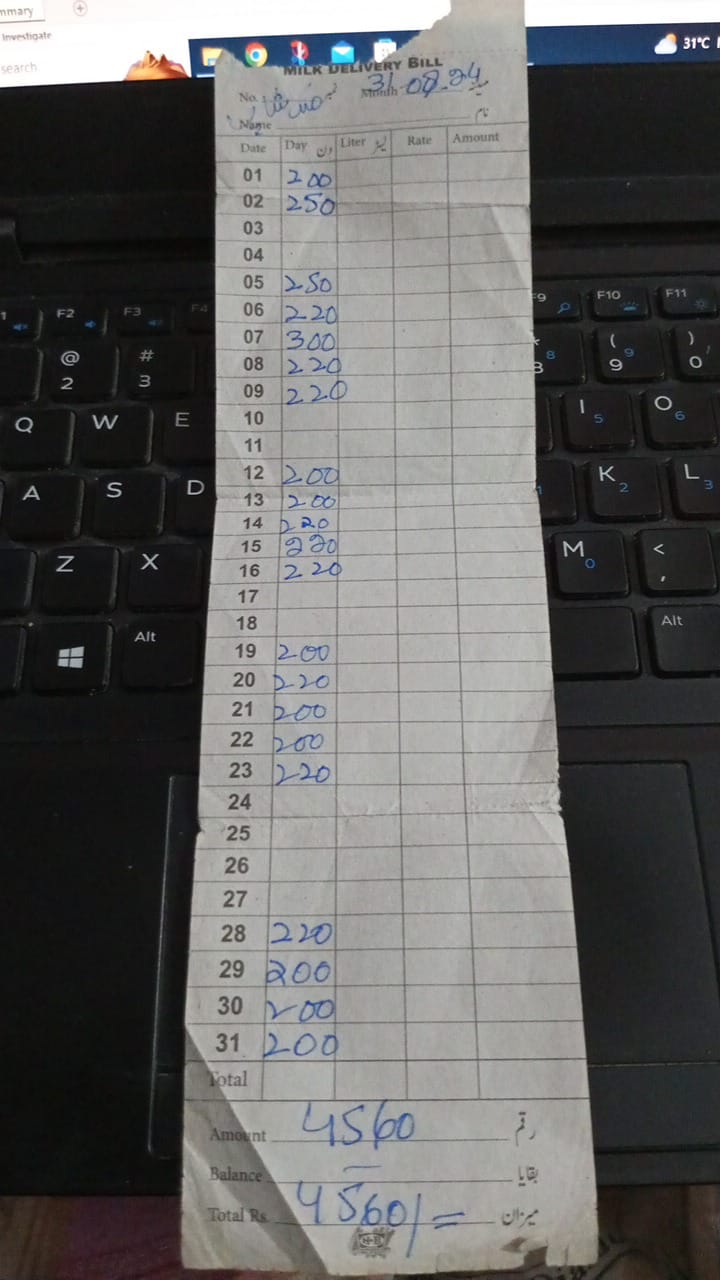 mmary
Investigate
search
31°C
MILK DELIVERY BILL
No. نمبر Month 31-08-24
Name نام
Date Day دن Liter لیٹر Rate Amount
01 200
02 250
03
04
05 250
06 220
07 300
08 220
09 220
10
11
12 200
13 200
14 220
15 220
16 220
17
18
19 200
20 220
21 200
22 200
23 220
24
25
26
27
28 220
29 200
30 200
31 200
Total
Amount 4560 رقم
Balance — بقایا
Total Rs. 4560/= میزان
H-B
F2 F3 F4
F9 F10 F11
@ 2
# 3
8
( 9 9
) 0
Q W E
I 5 O 6
A S D
K 2 L 3
Z X
M 0 < ,
Alt
Alt